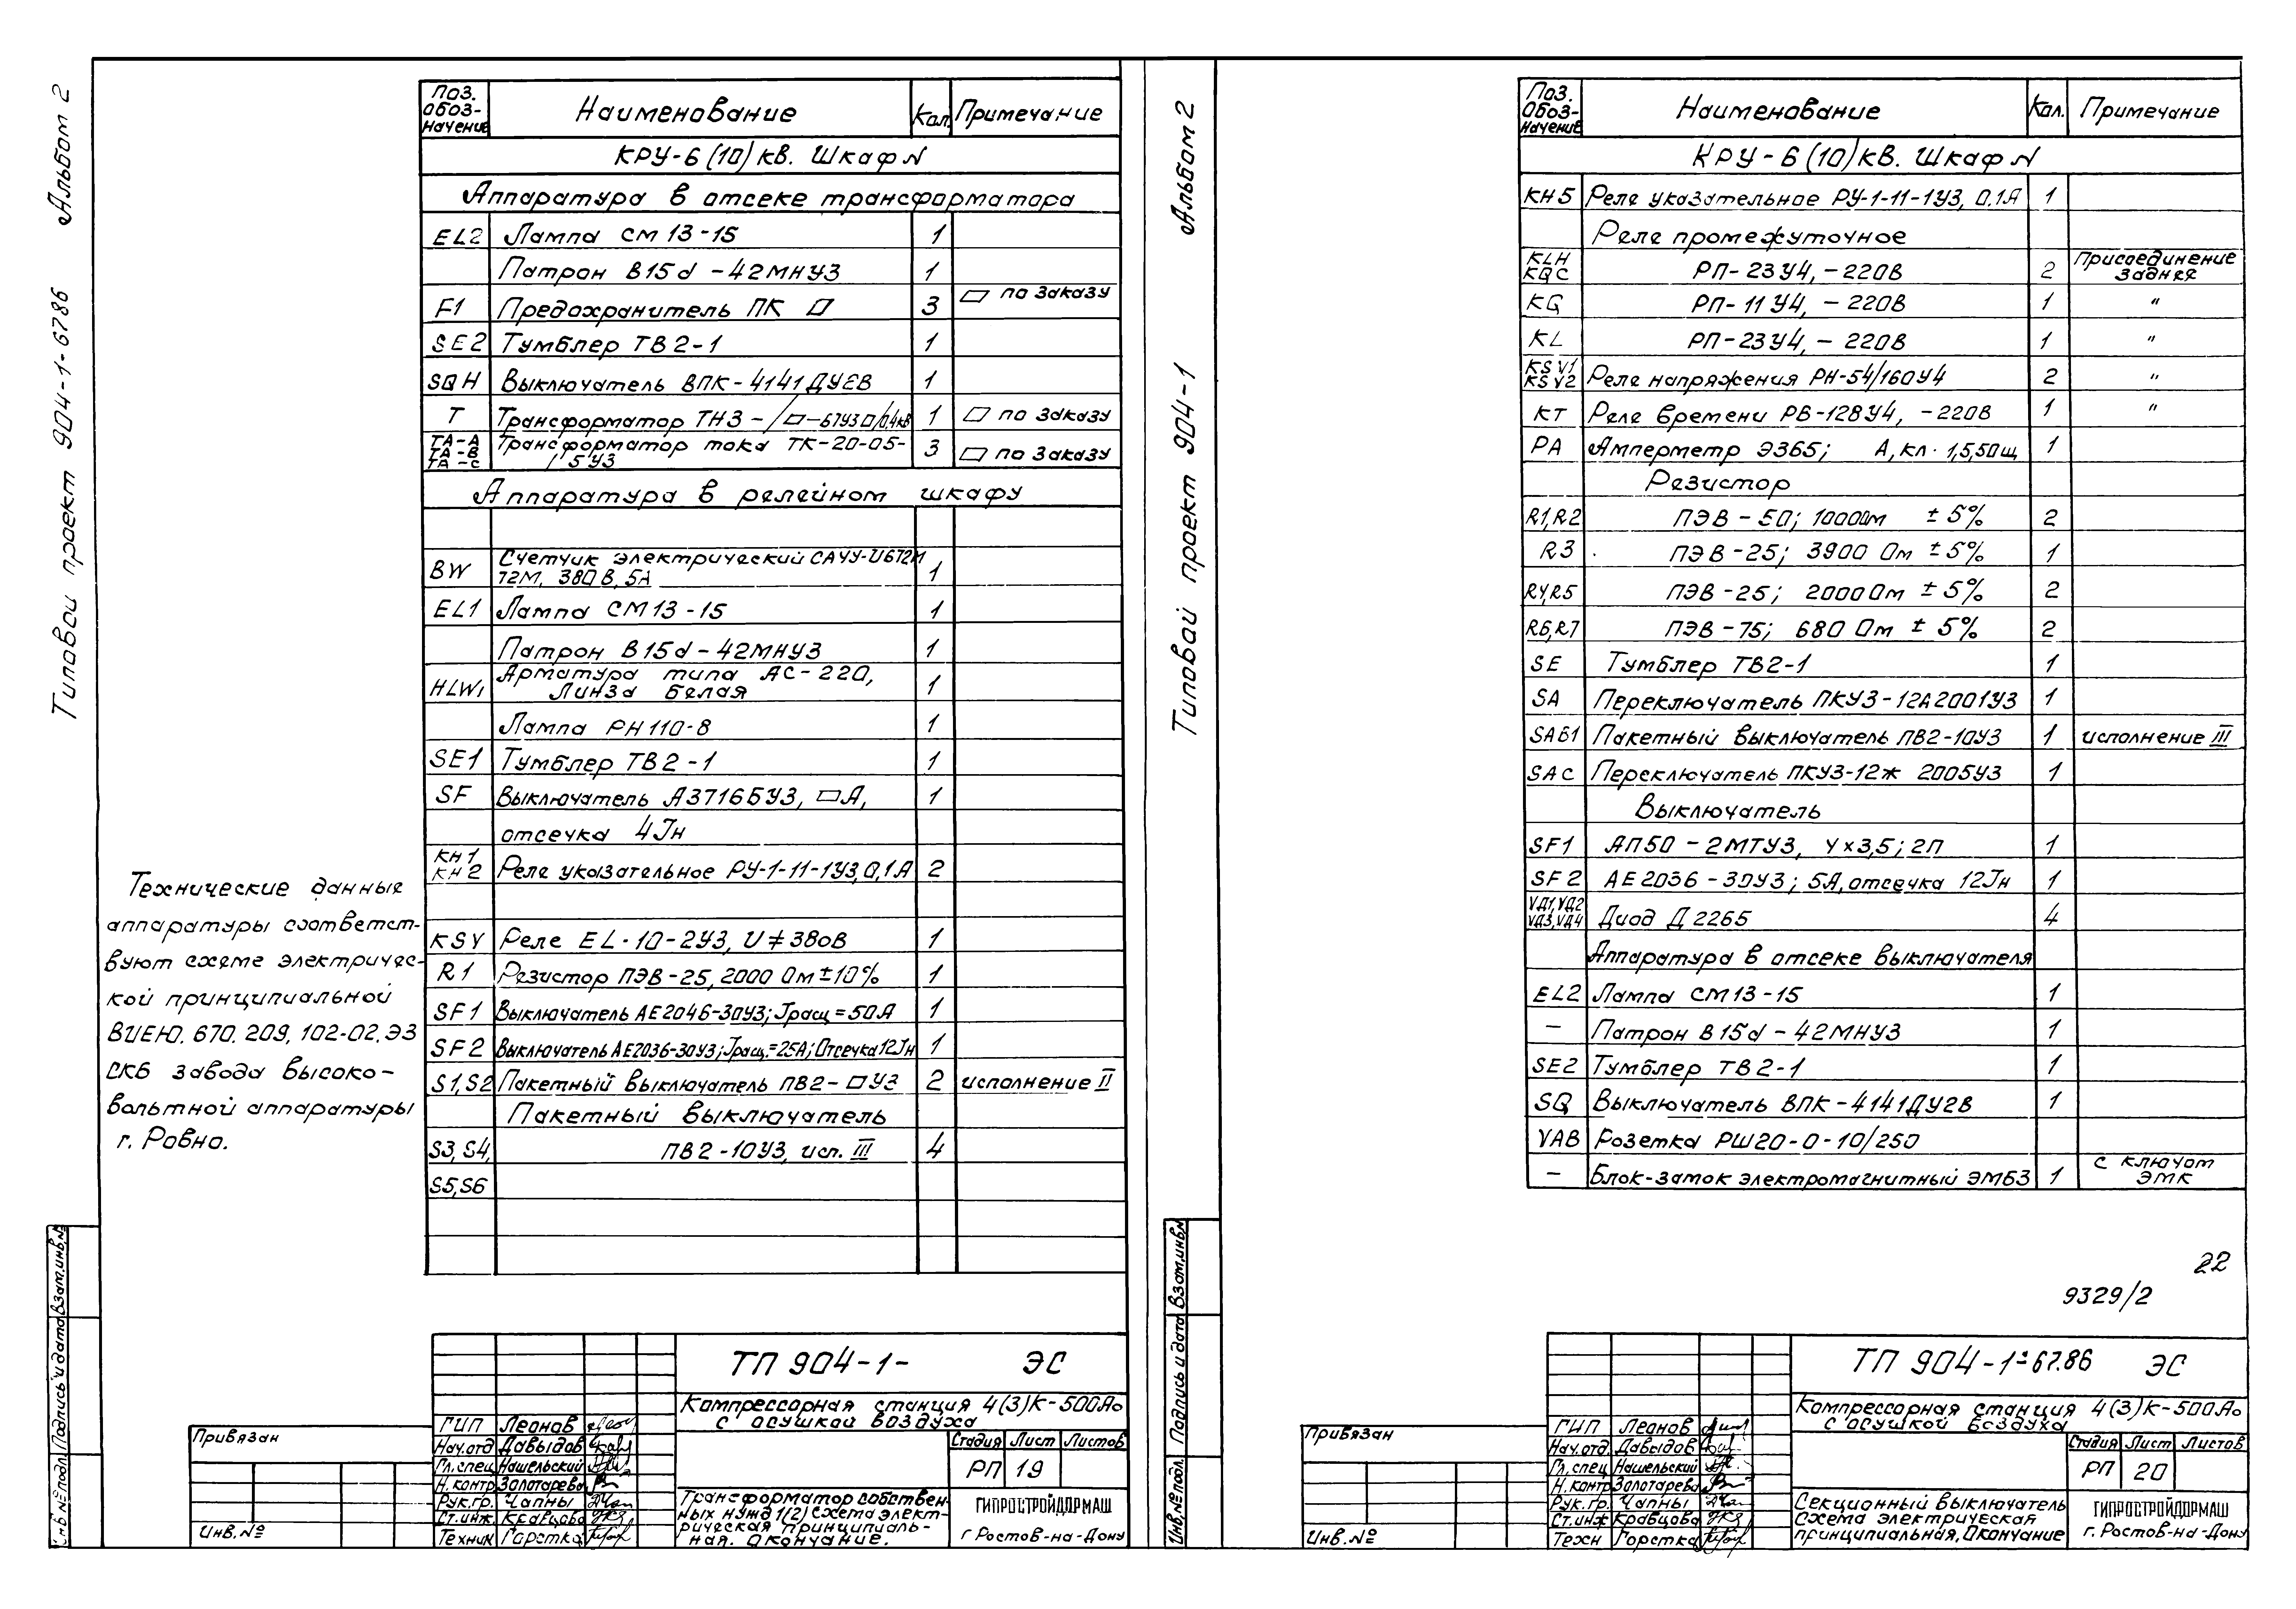 Альбом 2
Типовой проект 904-1-67.86
Поз. обоз- начение Наименование Кол. Примечание
КРУ-6(10)кв. Шкаф N
Аппаратура в отсеке трансформатора
EL2 Лампа СМ13-15 1
Патрон В15d-42МНУЗ 1
F1 Предохранитель ПК ▱ 3 ▱ по заказу
SE2 Тумблер ТВ2-1 1
SQH Выключатель ВПК-4141ДУ2В 1
Т Трансформатор ТНЗ-/▱-67УЗ▱/0,4кв 1 ▱ по заказу
ТА-А ТА-В ТА-С Трансформатор тока ТК-20-05- 3 ▱ по заказу
/5У3
Аппаратура в релейном шкафу
BW Счетчик электрический САЧУ-И672М
72М, 380В, 5А 1
EL1 Лампа СМ13-15 1
Патрон В15d-42МНУЗ 1
HLW1 Арматура типа АС-220,
Линза белая 1
Лампа РН110-8 1
SE1 Тумблер ТВ2-1 1
SF Выключатель А3716БУЗ, ▱А, 1
отсечка 4Jн
КН1 КН2 Реле указательное РУ-1-11-1УЗ,0,1А 2
KSV Реле EL-10-2УЗ, U≠380В 1
R1 Резистор ПЭВ-25, 2000 Ом±10% 1
SF1 Выключатель АЕ2046-30УЗ; Jращ=50А 1
SF2 Выключатель АЕ2036-30УЗ; Jращ.=25А; Отсечка 12Jн 1
S1,S2 Пакетный выключатель ПВ2-▱УЗ 2 исполнение II
Пакетный выключатель
S3,S4, ПВ2-10УЗ, исп. III 4
S5,S6
Технические данные
аппаратуры соответст-
вуют схеме электричес-
кой принципиальной
ВИЕЮ. 670. 209, 102-02.ЭЗ
СКБ завода высоко-
вольтной аппаратуры
г. Ровно.
Инв.№подл. Подпись и дата Взам.инв.№
Привязан
Инв.№
ТП 904-1- ЭС
Компрессорная станция 4(3)К-500Ао
с осушкой воздуха
Стадия Лист Листов
РП 19
ГИП Леонов
Нач.отд Давыдов
Гл.спец Нашельский
Н.контр Золотарева
Рук.гр. Чапны
Ст.инж. Кравцова
Техник Горстка
Трансформатор собствен-
ных нужд 1(2) схема элект-
рическая принципиаль-
ная. Окончание.
ГИПРОСТРОЙДОРМАШ
г Ростов-на-Дону
Альбом 2
Типовой проект 904-1
Поз. Обоз- начение Наименование Кол. Примечание
КРУ-6(10)кв. Шкаф N
КН5 Реле указательное РУ-1-11-1УЗ, 0.1А 1
Реле промежуточное
KLH KQC РП-23У4,-220В 2 Присоединение заднее
KQ РП-11У4,-220В 1 "
KL РП-23У4,-220В 1 "
KSV1 KSV2 Реле напряжения РН-54/160У4 2 "
КТ Реле времени РВ-128У4, -220В 1 "
РА Амперметр Э365; А, кл. 1,5,50щ 1
Резистор
R1,R2 ПЭВ-50; 1000Ом ±5% 2
R3 ПЭВ-25; 3900 Ом ±5% 1
R4,R5 ПЭВ-25; 2000Ом ±5% 2
R6,R7 ПЭВ-75; 680 Ом ±5% 2
SE Тумблер ТВ2-1 1
SA Переключатель ПКУЗ-12А2001УЗ 1
SAB1 Пакетный выключатель ПВ2-10УЗ 1 исполнение III
SAC Переключатель ПКУЗ-12ж 2005УЗ 1
Выключатель
SF1 АП50-2МТУЗ, Ух3,5; 2П 1
SF2 АЕ2036-30УЗ; 5А, отсечка 12Jн 1
VД1,VД2 VД3,VД4 Диод Д226Б 4
Аппаратура в отсеке выключателя
EL2 Лампа СМ13-15 1
— Патрон В15d-42МНУЗ 1
SE2 Тумблер ТВ2-1 1
SQ Выключатель ВПК-4141ДУ2В 1
YAB Розетка РШ20-0-10/250
— Блок-замок электромагнитный ЭМБЗ 1 с ключом ЭМК
22
9329/2
Инв.№подл. Подпись и дата Взам.инв.№
Привязан
Инв.№
ТП 904-1-67.86 ЭС
Компрессорная станция 4(3)К-500Ао
с осушкой воздуха
Стадия Лист Листов
РП 20
ГИП Леонов
Нач.отд. Давыдов
Гл.спец Нашельский
Н.контр Золотарева
Рук.гр. Чапны
Ст.инж Кравцова
Техн Горстка
Секционный выключатель
Схема электрическая
принципиальная, Окончание
ГИПРОСТРОЙДОРМАШ
г. Ростов-на-Дону